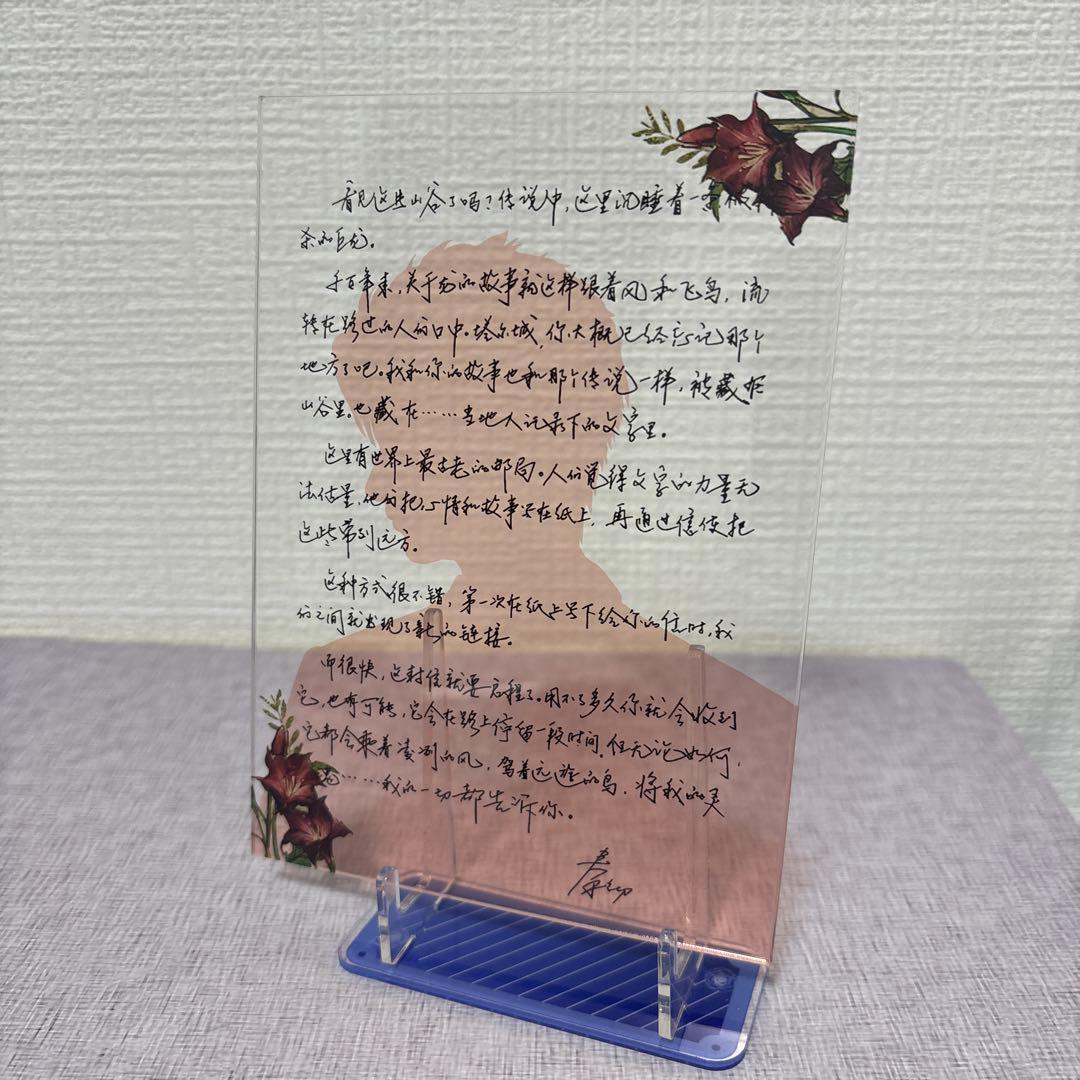 看见这些山谷了吗？传说中，这里沉睡着一
杀的巨龙。
千百年来，关于龙的故事就这样跟着风和飞鸟，流
转在路过的人们口中。塔尔城，你大概已经忘记那个
地方了吧。我和你的故事也和那个传说一样，被藏在
山谷里。也藏在……当地人记录下的文字里。
这里有世界上最古老的邮局。人们觉得文字的力量无
法估量，他们把心情和故事写在纸上，再通过信使把
这些带到远方。
这种方式很不错，第一次在纸上写下给你的信时，我
们之间就发现了新的链接。
而很快，这封信就要启程了。用不了多久你就会收到
它，也有可能，它会在路上停留一段时间。但无论如何，
它都会乘着凛冽的风，驾着远途的鸟，将我的灵
魂……我的一切都告诉你。
秦彻